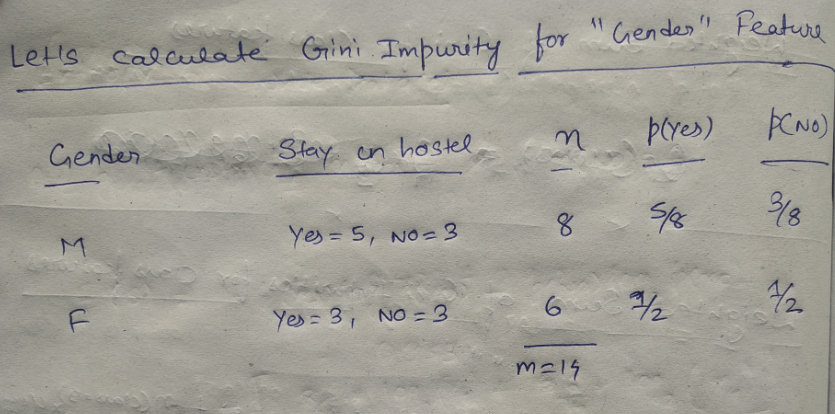 Let's calculate Gini Impurity for "Gender" Feature
Gender Stay in hostel n p(Yes) p(NO)
M Yes = 5, NO = 3 8 5/8 3/8
F Yes = 3, NO = 3 6 1/2 1/2
m=14